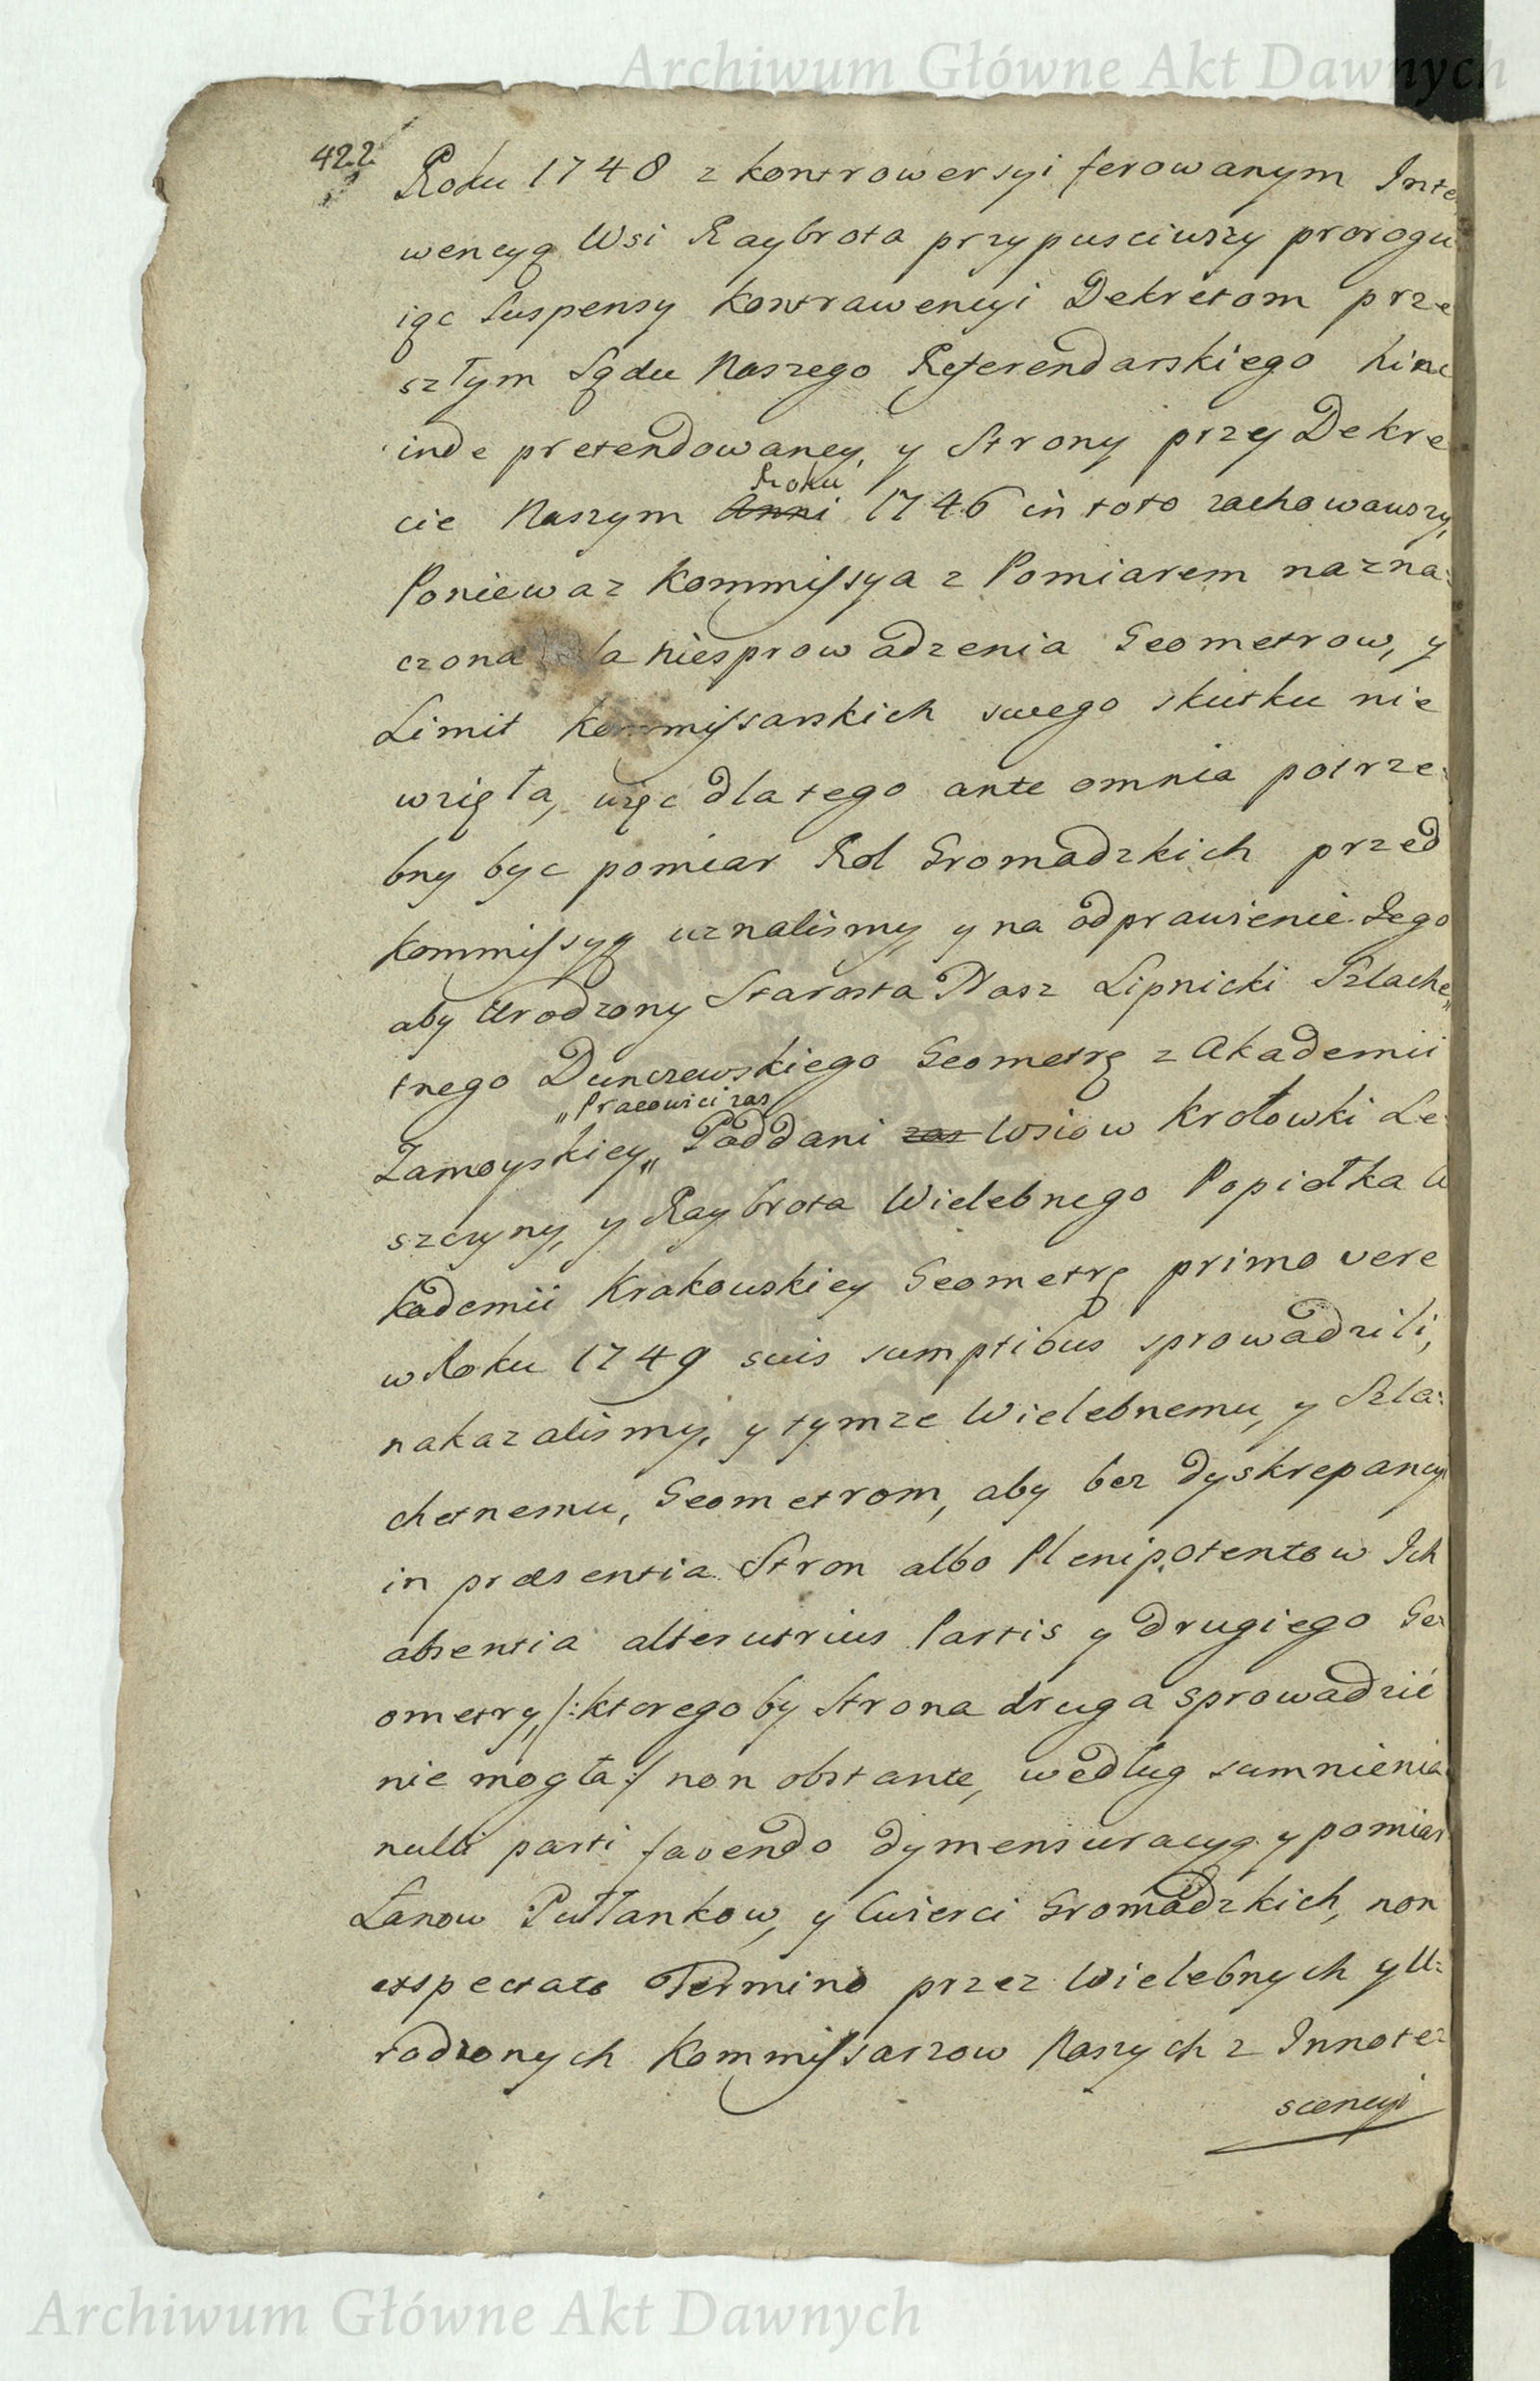 Archiwum Główne Akt Dawnych
422
Roku 1748 z kontrowersyi ferowanym Inte
wencyą Wsi Raybrota przypusciwszy prorogu
iąc Suspensy kontrawencyi Dekretom prze
szłym Sądu Naszego Referendarskiego hinc
inde pretendowaney, y Strony przy Dekre
Roku
cie Naszym Anni 1746 in toto zachowawszy,
Poniewaz Kommissya z Pomiarem nazna:
czona dla niesprowadzenia Geometrow, y
Limit kommissarskich swego skutku nie
wzięła, więc dla tego ante omnia potrze:
bny byc pomiar Rol Gromadzkich przed
kommissyą uznalismy, y na odprawienie Jego
aby Urodzony Starosta Nasz Lipnicki Szlache„
tnego Dunczewskiego Geometrę z Akademii
„Pracowici zas
Zamoyskiey„ Poddani zas Wsiow Krolowki Le:
szczyny, y Raybrota Wielebnego Popiołka A
kademii Krakowskiey Geometrę primo vere
w Roku 1749 suis sumptibus sprowadzili,
nakazalismy, y tymze Wielebnemu, y Szla:
chetnemu, Geometrom, aby bez dyskrepancyi
in præsentia Stron albo Plenipotentow Ich
absentia alterutrius Partis y drugiego Ge:
ometry, /:ktoregoby Strona druga sprowadzić
nie mogła:/ non obstante, według sumnienia
nulli parti favendo dymensuracyą y pomiar
Łanow Pułłankow, y Cwierci Gromadzkich, non
exspectato Termino przez Wielebnych y U:
rodzonych Kommissarzow Naszych z Innote:
scencyi
Archiwum Główne Akt Dawnych